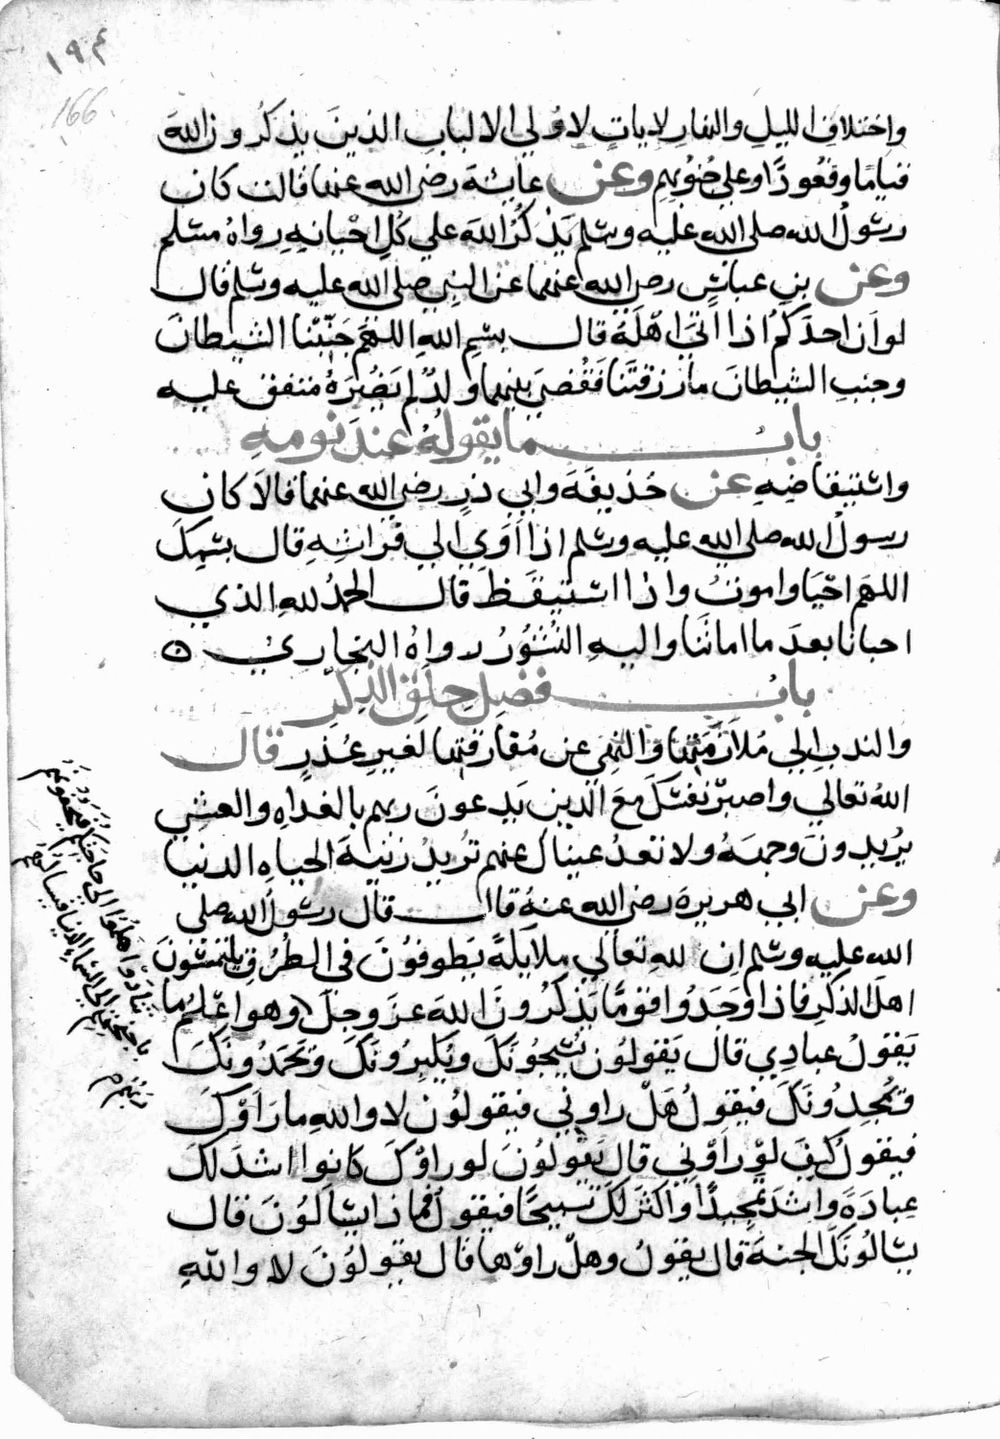 ١٩٤
166
واختلاف الليل والنهار لايات لاولي الالباب الذين يذكرون الله
قياما وقعودًا وعلى جنوبهم وعن عايشة رضي الله عنها قالت كان
رسول الله صلى الله عليه وسلم يذكر الله علي كل احيانه رواه مسلم
وعن بن عباس رضي الله عنهما عن النبي صلى الله عليه وسلم قال
لو ان احدكم اذا اتي اهله قال بسم الله اللهم جنبنا الشيطان
وجنب الشيطان ما رزقتنا فقضي بينهما ولد لم يضره متفق عليه
باب ما يقوله عند نومه
واستيقاضه عن حذيفة وابي ذر رضي الله عنهما قالا كان
رسول الله صلى الله عليه وسلم اذا اوي الي فراشه قال بسمك
اللهم احيا واموت واذا استيقظ قال الحمد لله الذي
احيانا بعد ما اماتنا واليه النشور رواه البخاري ه
باب فضل حلق الذكر
والندب الي ملازمتها والنهي عن مفارقتها لغير عذر قال
الله تعالي واصبر نفسك مع الذين يدعون ربهم بالغداه والعشي
يريدون وجهه ولا تعد عيناك عنهم تريد زينة الحياه الدنيا
وعن ابي هريرة رضي الله عنه قال قال رسول الله صلى
الله عليه وسلم ان لله تعالي ملايكة يطوفون في الطرق يلتمسون
اهل الذكر فاذا وجدوا قوما يذكرون الله عز وجل وهو اعلم ما
يقول عبادي قال يقولون يسبحونك ويكبرونك ويحمدونك
ويمجدونك فيقول هل راوني فيقولون لا والله ما راوك
فيقول كيف لو راوني قال يقولون لو راوك كانوا اشد لك
عبادة واشد تمجيدًا واكثر لك تسبيحًا فيقول فماذا يسالون قال
يسالونك الجنة قال يقول وهل راوها قال يقولون لا والله
تنادوا هلموا الى حاجتكم فيحفونهم
باجنحتهم الى السماء الدنيا فيسالهم
ربهم